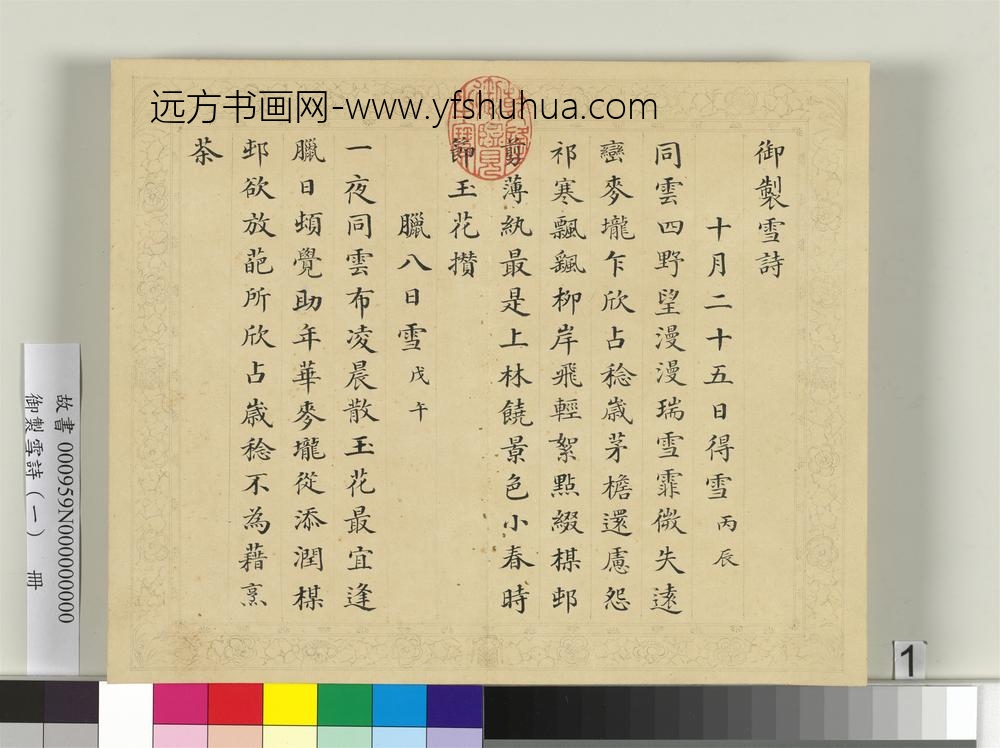 远方书画网-www.yfshuhua.com
御製雪詩
十月二十五日得雪 丙辰
同雲四野望漫漫瑞雪霏微失遠
巒麥壠乍欣占稔歲茅檐還慮怨
祁寒飄颻柳岸飛輕絮點綴楳邨
剪薄紈最是上林饒景色小春時
節玉花攢
臘八日雪 戊午
一夜同雲布凌晨散玉花最宜逢
臘日頓覺助年華麥壠從添潤楳
邨欲放葩所欣占歲稔不為藉烹
茶
故書 000959N000000000
御製雪詩(一) 冊
1